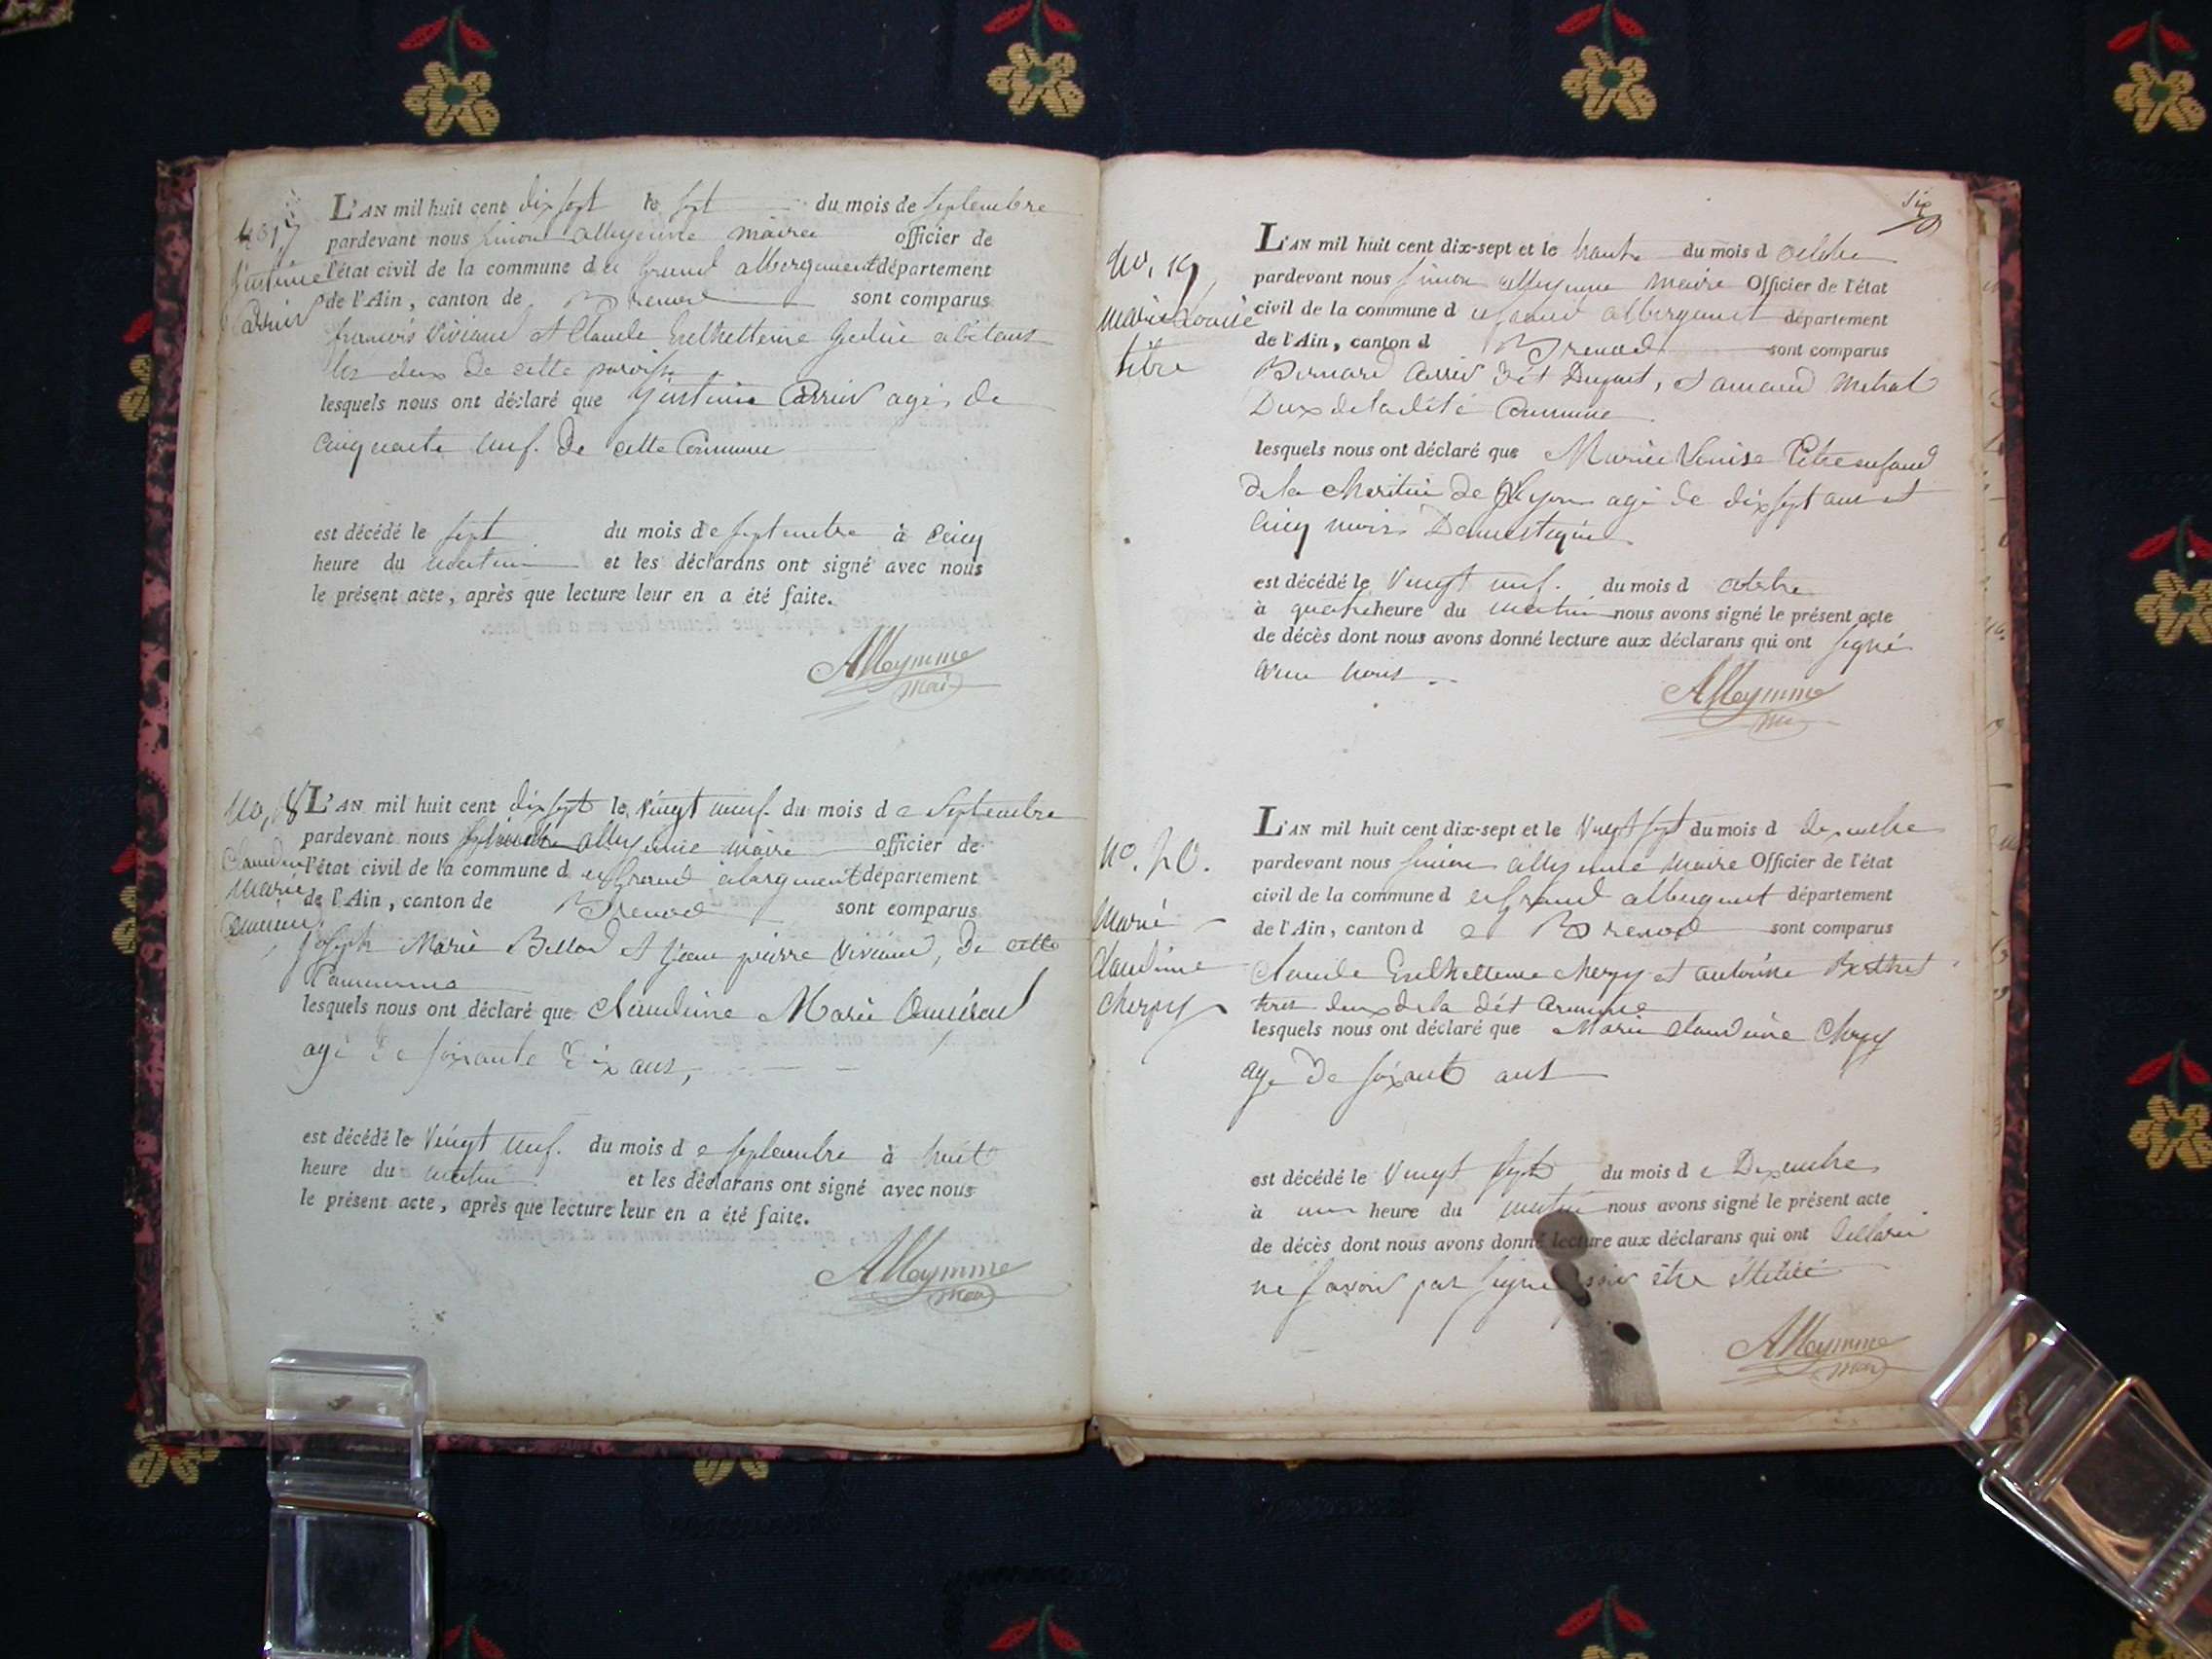 No 17
Justinie
Carrier
L'AN mil huit cent dix sept le sept du mois de septembre
pardevant nous simon alleyenme mairee officier de
l'état civil de la commune d u Grand albergement département
de l'Ain, canton de Brenod sont comparus
francois Viviand et Claude habitans
les deux de cette paroisse
lesquels nous ont déclaré que Justinie Carrier agé de
cinquante neuf. De cette Commune
est décédé le sept du mois de septembre à Cinq
heure du matin et les déclarans ont signé avec nous
le présent acte, après que lecture leur en a été faite.
Alleymme
maire
No, 18
Claudine
Marie
L'AN mil huit cent dix sept le vingt neuf. du mois d e Septembre
pardevant nous alleyenme maire officier de
l'état civil de la commune d u Grand département
de l'Ain, canton de Brenod sont comparus
Joseph Marie Billod et Jean pierre Viviand, De cette
Commune
lesquels nous ont déclaré que Claudine Marie
agé de soixante dix ans,
est décédé le Vingt neuf. du mois d e septembre à huit
heure du matin et les déclarans ont signé avec nous
le présent acte, après que lecture leur en a été faite.
Alleymme
maire
six
No, 19
Marie Louise
L'AN mil huit cent dix-sept et le trante du mois d octobre
pardevant nous simon alleyenme maire Officier de l'état
civil de la commune d u Grand albergement département
de l'Ain, canton d Brenod sont comparus
Bernard Carrier dit et amand Metral
Deux de ladite Commune
lesquels nous ont déclaré que Marie Louise enfand
de la Charitée de Lyon agé de dix sept ans et
cinq mois Domestique
est décédé le Vingt neuf. du mois d octobre
à quatre heure du matin nous avons signé le présent acte
de décès dont nous avons donné lecture aux déclarans qui ont signé
avec nous
Alleymme
No. 20.
Marie
Claudine
Cherpy
L'AN mil huit cent dix-sept et le Vingt sept du mois d dexembre
pardevant nous simon alleyenme maire Officier de l'état
civil de la commune d u Grand albergement département
de l'Ain, canton d e Brenod sont comparus
Claude Cherpy et antoine Berthet
deux de la dit Commune
lesquels nous ont déclaré que Marie Claudine Cherpy
agé De soixante ans
est décédé le Vingt sept du mois d e Dexembre
à une heure du matin nous avons signé le présent acte
de décès dont nous avons donné lecture aux déclarans qui ont dellaré
ne savoir pas signe être
Alleymme
maire